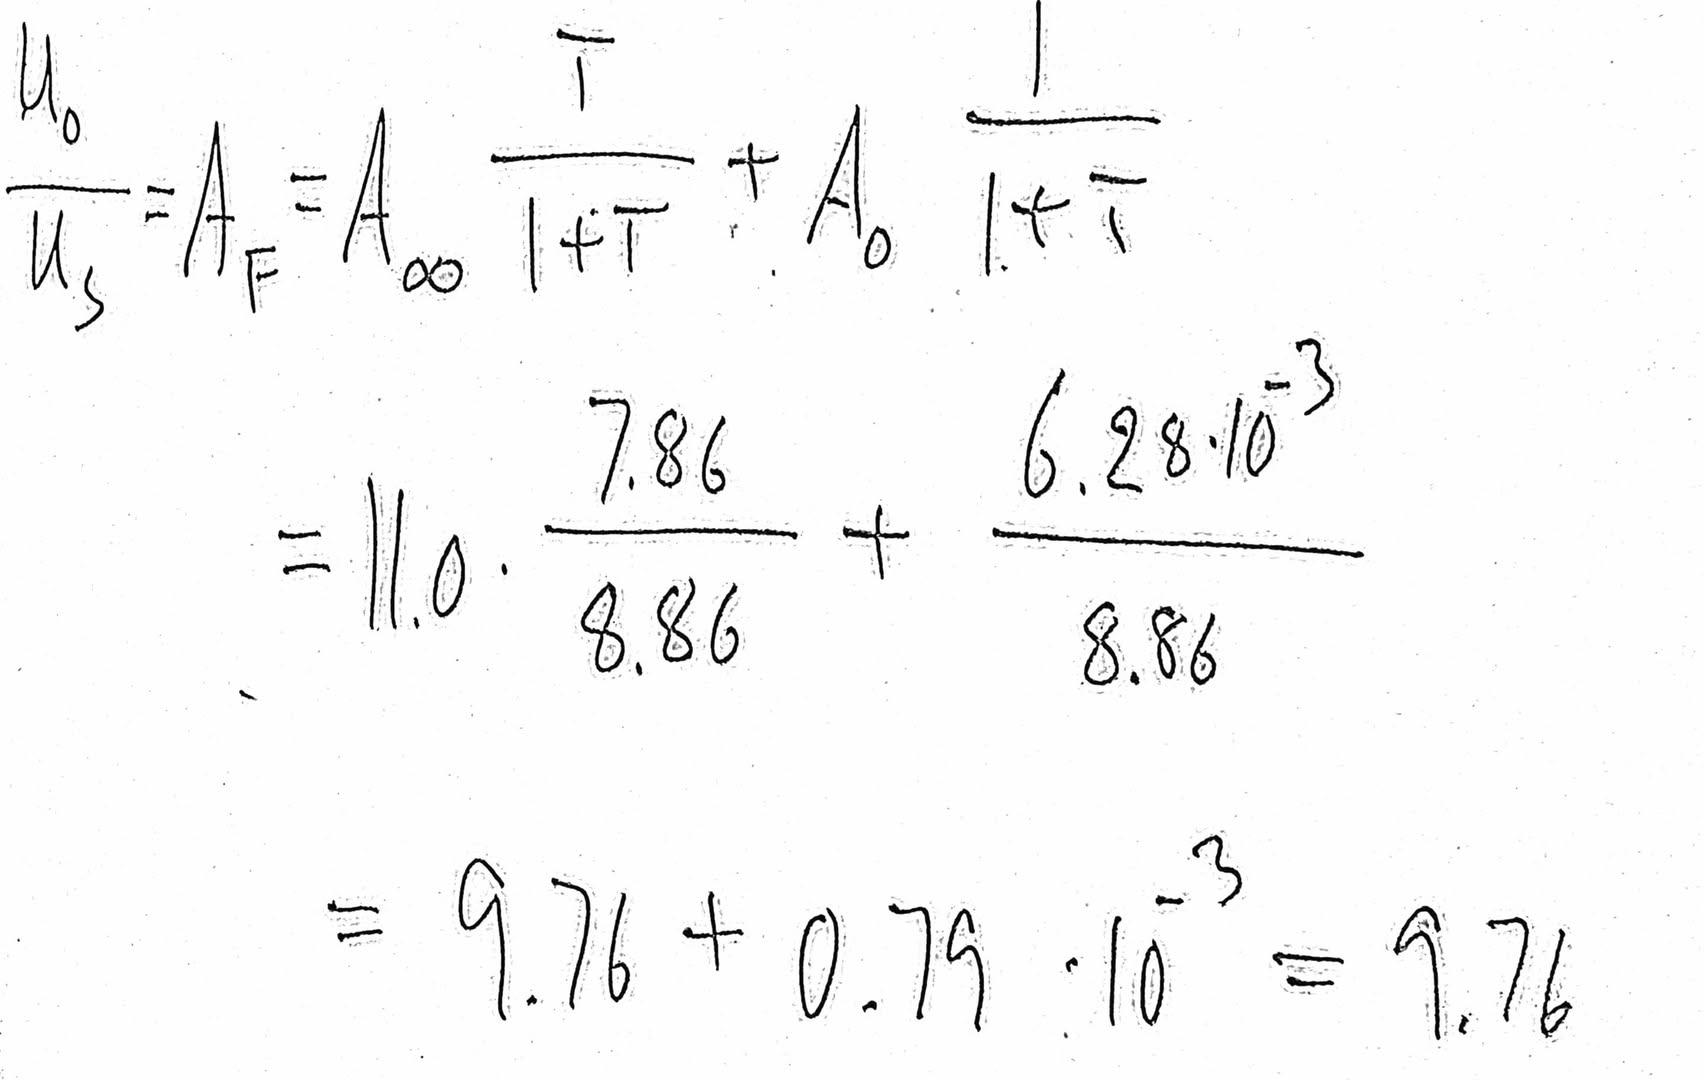 u₀/u_s = A_F = A_∞ T/(1+T) + A₀ 1/(1+T)
= 11.0 · 7.86/8.86 + 6.28·10⁻³/8.86
= 9.76 + 0.79 · 10⁻³ = 9.76